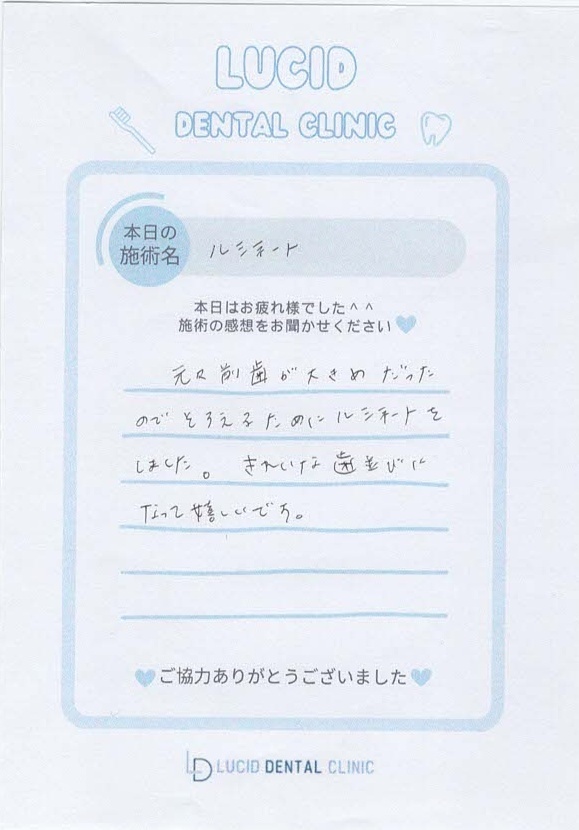 LUCID
DENTAL CLINIC
本日の
施術名
ルシネート
本日はお疲れ様でした^ ^
施術の感想をお聞かせください
元々前歯が大きめだった
のでそろえるためにルシネートを
しました。きれいな歯並びに
なって嬉しいです。
ご協力ありがとうございました
LD LUCID DENTAL CLINIC